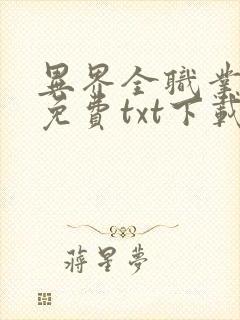 異界全職業
免費txt下載
蔣星夢